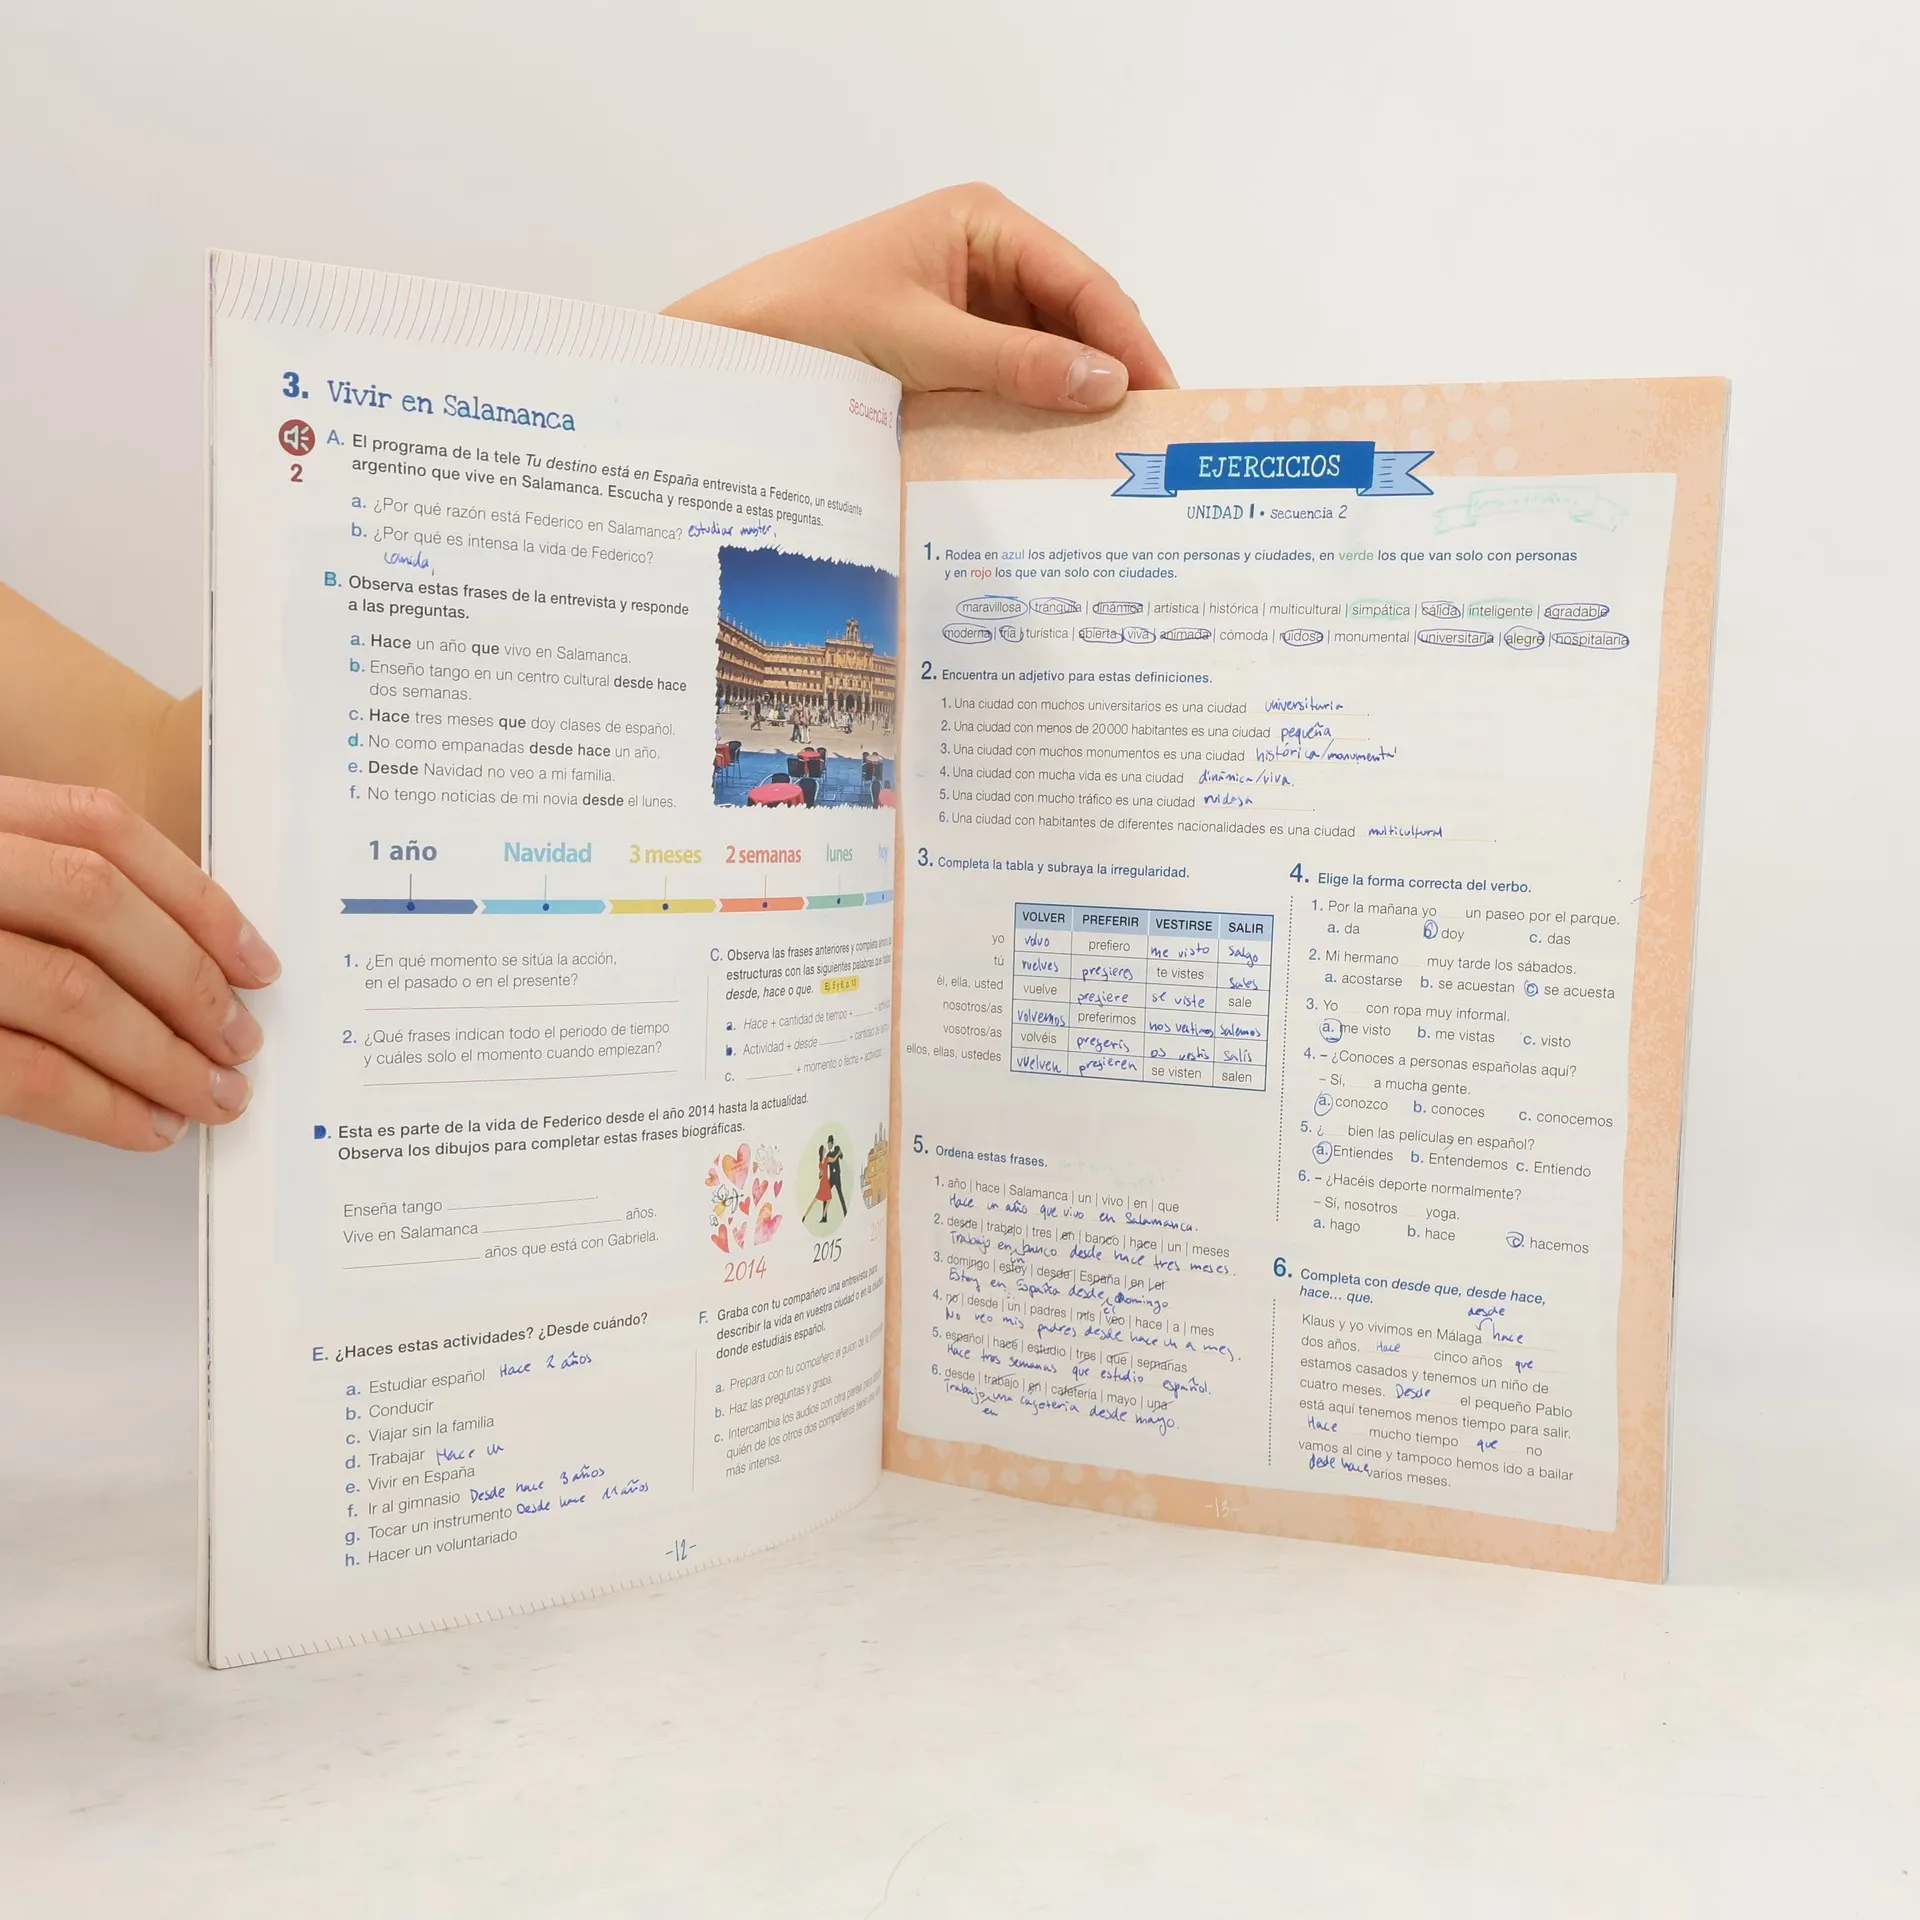 3. Vivir en Salamanca
Secuencia 2
2
A. El programa de la tele Tu destino está en España entrevista a Federico, un estudiante
argentino que vive en Salamanca. Escucha y responde a estas preguntas.
a. ¿Por qué razón está Federico en Salamanca? estudiar master,
b. ¿Por qué es intensa la vida de Federico?
comida,
B. Observa estas frases de la entrevista y responde
a las preguntas.
a. Hace un año que vivo en Salamanca.
b. Enseño tango en un centro cultural desde hace
dos semanas.
c. Hace tres meses que doy clases de español.
d. No como empanadas desde hace un año.
e. Desde Navidad no veo a mi familia.
f. No tengo noticias de mi novia desde el lunes.
1 año Navidad 3 meses 2 semanas lunes hoy
1. ¿En qué momento se sitúa la acción,
en el pasado o en el presente?
2. ¿Qué frases indican todo el periodo de tiempo
y cuáles solo el momento cuando empiezan?
C. Observa las frases anteriores y completa
estructuras con las siguientes palabras que
desde, hace o que. Ej. 5 y 6, p. 13
a. Hace + cantidad de tiempo + ____ +
b. Actividad + desde ____ + cantidad de
c. ____ + momento o fecha + actividad
D. Esta es parte de la vida de Federico desde el año 2014 hasta la actualidad.
Observa los dibujos para completar estas frases biográficas.
Enseña tango ____.
Vive en Salamanca ____ años.
____ años que está con Gabriela.
2014 2015
E. ¿Haces estas actividades? ¿Desde cuándo?
a. Estudiar español Hace 2 años
b. Conducir
c. Viajar sin la familia
d. Trabajar Hace un
e. Vivir en España
f. Ir al gimnasio Desde hace 3 años
g. Tocar un instrumento Desde hace 11 años
h. Hacer un voluntariado
F. Graba con tu compañero una entrevista para
describir la vida en vuestra ciudad o en la ciudad
donde estudiáis español.
a. Prepara con tu compañero el guion de la entrevista
b. Haz las preguntas y graba.
c. Intercambia los audios con otra pareja para
quién de los otros dos compañeros tiene una vida
más intensa.
-12-
EJERCICIOS
UNIDAD 1 • secuencia 2
1. Rodea en azul los adjetivos que van con personas y ciudades, en verde los que van solo con personas
y en rojo los que van solo con ciudades.
maravillosa | tranquila | dinámica | artística | histórica | multicultural | simpática | cálida | inteligente | agradable
moderna | fría | turística | abierta | viva | animada | cómoda | ruidosa | monumental | universitaria | alegre | hospitalaria
2. Encuentra un adjetivo para estas definiciones.
1. Una ciudad con muchos universitarios es una ciudad universitaria.
2. Una ciudad con menos de 20 000 habitantes es una ciudad pequeña.
3. Una ciudad con muchos monumentos es una ciudad histórica/monumental
4. Una ciudad con mucha vida es una ciudad dinámica/viva.
5. Una ciudad con mucho tráfico es una ciudad ruidosa.
6. Una ciudad con habitantes de diferentes nacionalidades es una ciudad multicultural.
3. Completa la tabla y subraya la irregularidad.
VOLVER PREFERIR VESTIRSE SALIR
yo volvo prefiero me visto salgo
tú vuelves prefieres te vistes sales
él, ella, usted vuelve prefiere se viste sale
nosotros/as volvemos preferimos nos vestimos salemos
vosotros/as volvéis preferís os vestís salís
ellos, ellas, ustedes vuelven prefieren se visten salen
4. Elige la forma correcta del verbo.
1. Por la mañana yo un paseo por el parque.
a. da b. doy c. das
2. Mi hermano muy tarde los sábados.
a. acostarse b. se acuestan c. se acuesta
3. Yo con ropa muy informal.
a. me visto b. me vistas c. visto
4. – ¿Conoces a personas españolas aquí?
– Sí, a mucha gente.
a. conozco b. conoces c. conocemos
5. ¿ bien las películas en español?
a. Entiendes b. Entendemos c. Entiendo
6. – ¿Hacéis deporte normalmente?
– Sí, nosotros yoga.
a. hago b. hace c. hacemos
5. Ordena estas frases.
1. año | hace | Salamanca | un | vivo | en | que
Hace un año que vivo en Salamanca.
2. desde | trabajo | tres | en | banco | hace | un | meses
Trabajo en un banco desde hace tres meses.
3. domingo | estoy | desde | España | en | el
Estoy en España desde el domingo
4. no | desde | un | padres | mis | veo | hace | a | mes
No veo mis padres desde hace un a mes.
5. español | hace | estudio | tres | que | semanas
Hace tres semanas que estudio español.
6. desde | trabajo | en | cafetería | mayo | una
Trabajo en una cafeteria desde mayo.
6. Completa con desde que, desde hace,
hace... que.
Klaus y yo vivimos en Málaga desde hace
dos años. Hace cinco años que
estamos casados y tenemos un niño de
cuatro meses. Desde el pequeño Pablo
está aquí tenemos menos tiempo para salir.
Hace mucho tiempo que no
vamos al cine y tampoco hemos ido a bailar
desde hace varios meses.
-13-